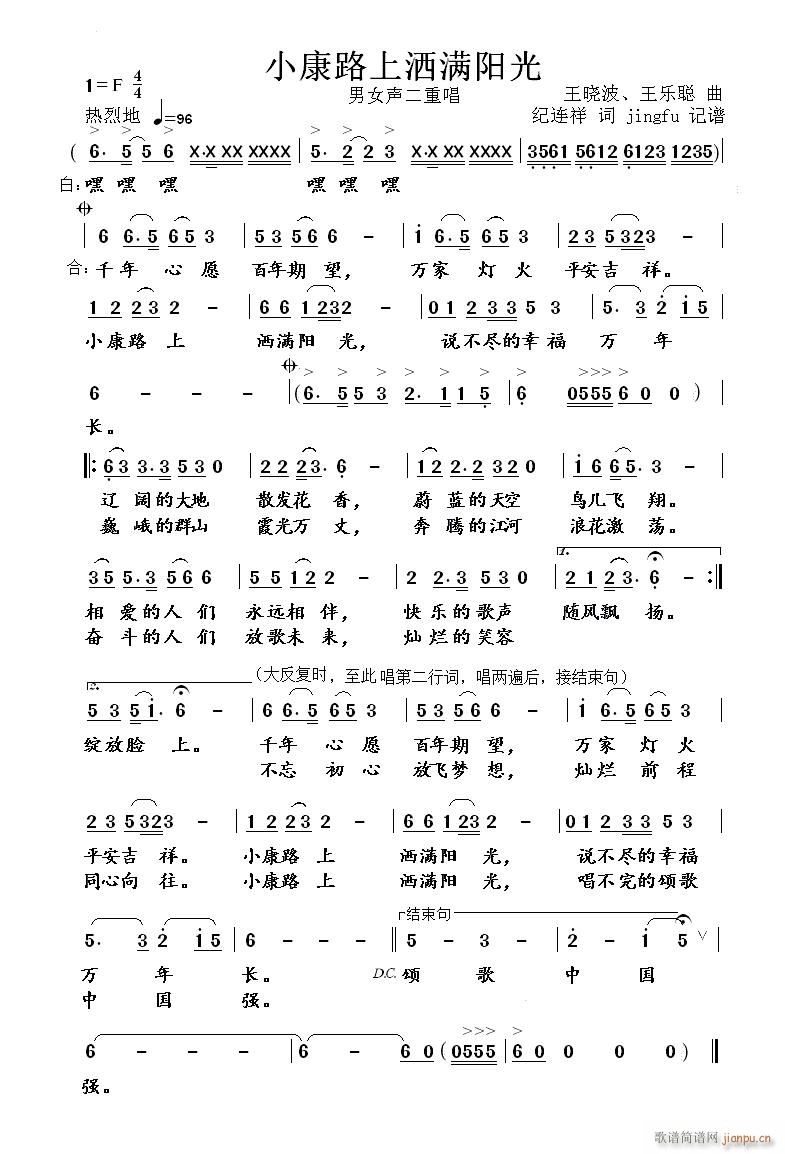 小康路上洒满阳光
1=F 4/4
男女声二重唱
王晓波、王乐聪 曲
热烈地 ♩=96
纪连祥 词 jingfu 记谱
( 6· 5 5 6 X·X XX XXXX | 5· 2 2 3 X·X XX XXXX | 3561 5612 6123 1235 ) |
白: 嘿 嘿 嘿 嘿 嘿 嘿
| 6 6·5 65 3 | 53 56 6 - | 1 6·5 65 3 | 23 5323 - |
合: 千 年 心 愿 百年期 望, 万 家 灯 火 平安吉 祥。
| 12 23 2 - | 66 1232 - | 012 33 53 | 5· 3 2 15 |
小康路 上 洒满阳 光, 说不尽的幸福 万 年
6 - - - | ( 6· 5 5 3 2· 1 1 5 | 6 0555 6 0 0 ) |
长。
|: 63 3·3 53 0 | 22 23· 6 - | 12 2·2 32 0 | 16 65· 3 - |
辽 阔的大地 散发花 香, 蔚 蓝的天空 鸟儿飞 翔。
巍 峨的群山 霞光万 丈, 奔 腾的江河 浪花激 荡。
1.
35 5·3 56 6 | 55 12 2 - | 2 2·3 53 0 | 21 23· 6 - :|
相 爱的人 们 永远相 伴, 快 乐的歌声 随风飘 扬。
奋 斗的人 们 放歌未 来, 灿 烂的笑容
(大反复时，至此 唱第二行词，唱两遍后，接结束句)
2.
53 51· 6 - | 6 6·5 65 3 | 53 56 6 - | 1 6·5 65 3 |
绽放脸 上。 千 年 心 愿 百年期 望, 万 家 灯 火
不 忘 初 心 放飞梦 想, 灿 烂 前 程
23 5323 - | 12 23 2 - | 66 1232 - | 012 33 53 |
平安吉 祥。 小康路 上 洒满阳 光, 说不尽的幸福
同心向 往。 小康路 上 洒满阳 光, 唱不完的颂歌
结束句
5· 3 2 15 | 6 - - - || 5 - 3 - | 2 - 1 5 ∨
万 年 长。 D.C. 颂 歌 中 国
中 国 强。
6 - - - | 6 - 6 0 ( 0555 | 6 0 0 0 ) ||
强。
歌谱简谱网
jianpu.cn